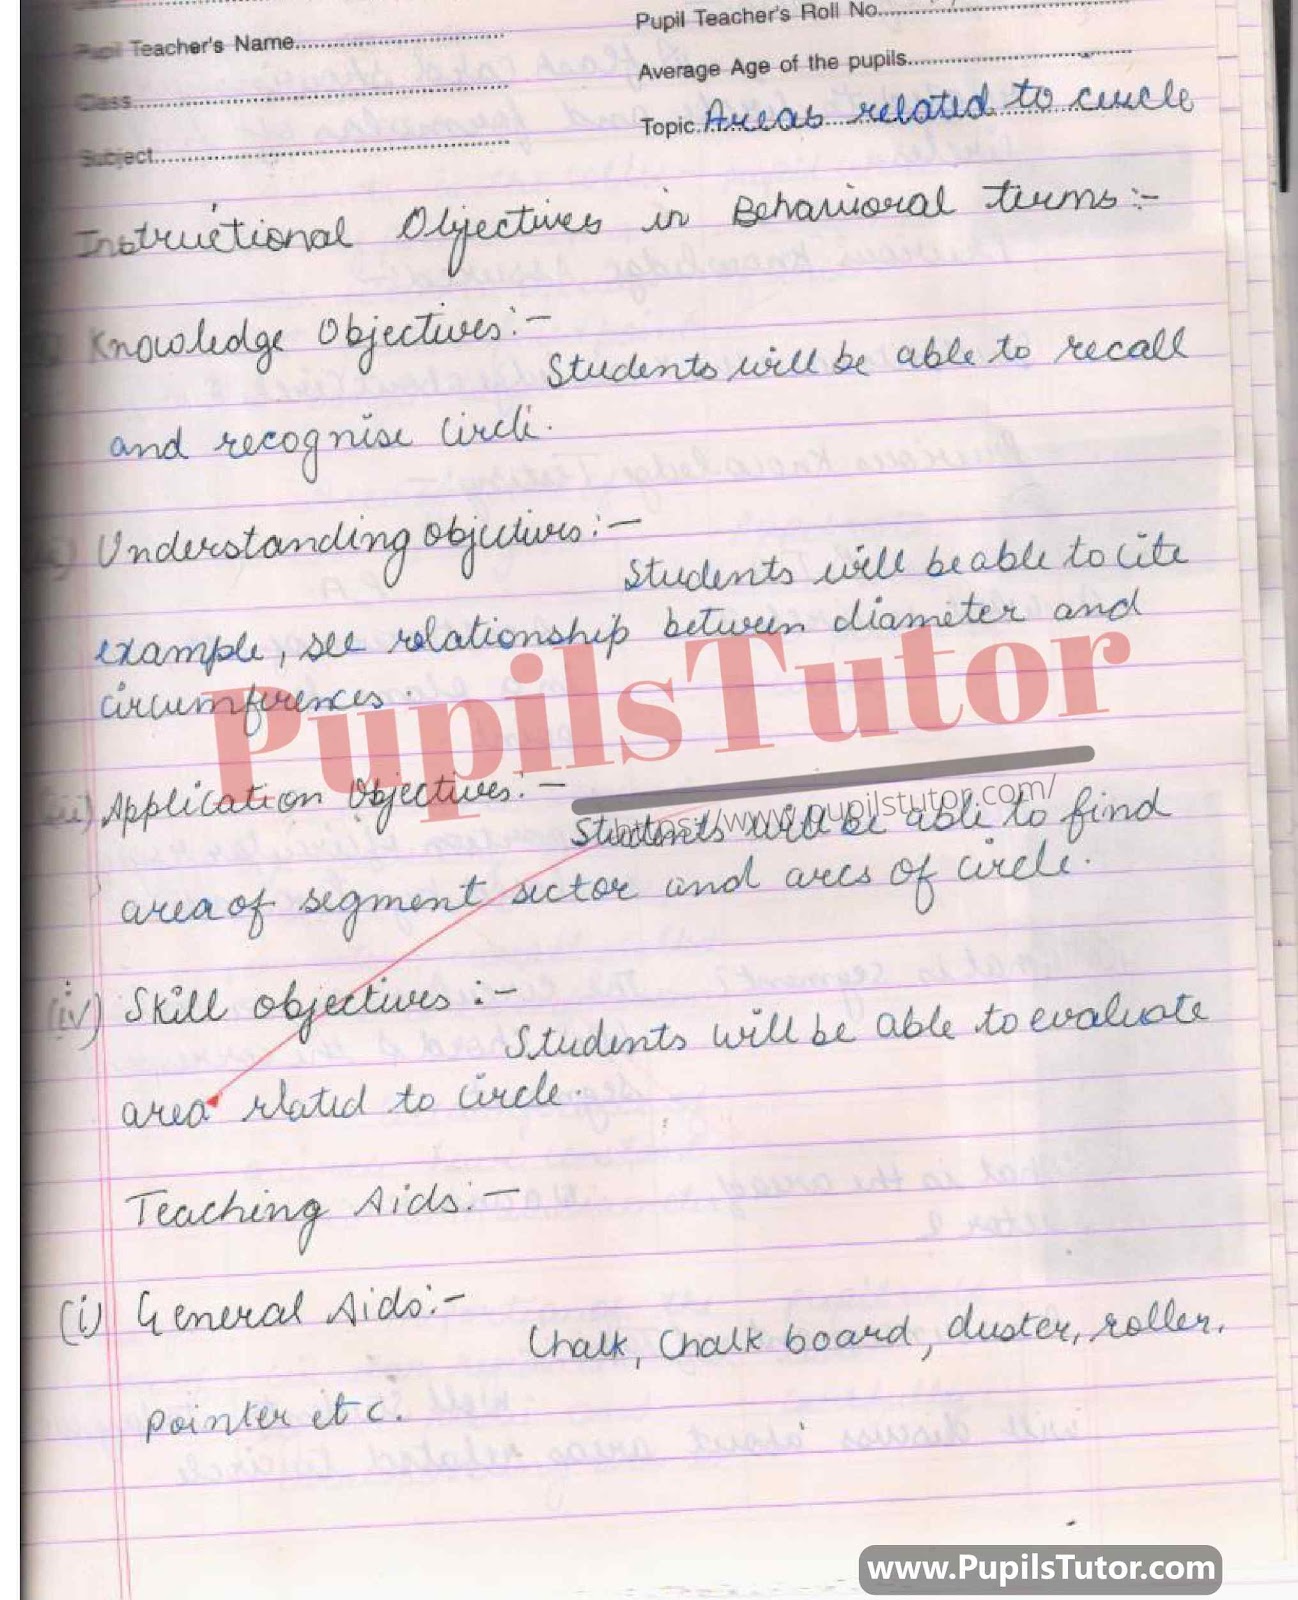 Pupil Teacher's Name
Pupil Teacher's Roll No.
Class
Average Age of the pupils
Subject
Topic. Areas related to circle
Instructional Objectives in Behavioral terms:-
Knowledge Objectives:-
Students will be able to recall
and recognise circle.
Understanding objectives:-
Students will be able to cite
example, see relationship between diameter and
circumferences.
PupilsTutor
https://www.pupilstutor.com/
(iii) Application Objectives:-
Students will be able to find
area of segment sector and arcs of circle.
(iv) Skill objectives:-
Students will be able to evaluate
area related to circle.
Teaching Aids:-
(i) General Aids:-
Chalk, Chalk board, duster, roller,
pointer etc.
www.PupilsTutor.com